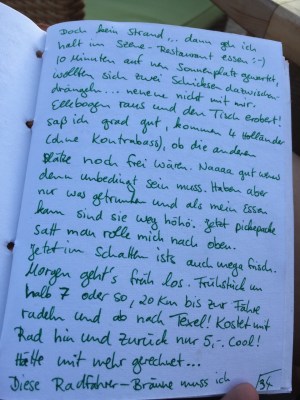 Doch kein Strand... dann geh ich
halt im Scene-Restaurant essen :-)
10 Minuten auf nen Sonnenplatz gewartet,
wollten sich zwei Schicksen dazwischen
drängeln... neneee nicht mit mir.
Ellebogen raus und den Tisch erobert!
saß ich grad gut, kommen 4 Holländer
(ohne Kontrabass), ob die anderen
Plätze noch frei wären. Naaaa gut wenns
denn unbedingt sein muss. Haben aber
nur was getrunken und als mein Essen
kam sind sie weg höhö. Jetzt pickepacke
satt man rolle mich nach oben.
Jetzt im Schatten ists auch mega frisch.
Morgen geht's früh los. Frühstück um
halb 7 oder so, 20 Km bis zur Fähre
radeln und ab nach Texel! Kostet mit
Rad hin und zurück nur 5,-. Cool!
Hätte mit mehr gerechnet...
Diese Radfahrer-Bräune muss ich
34